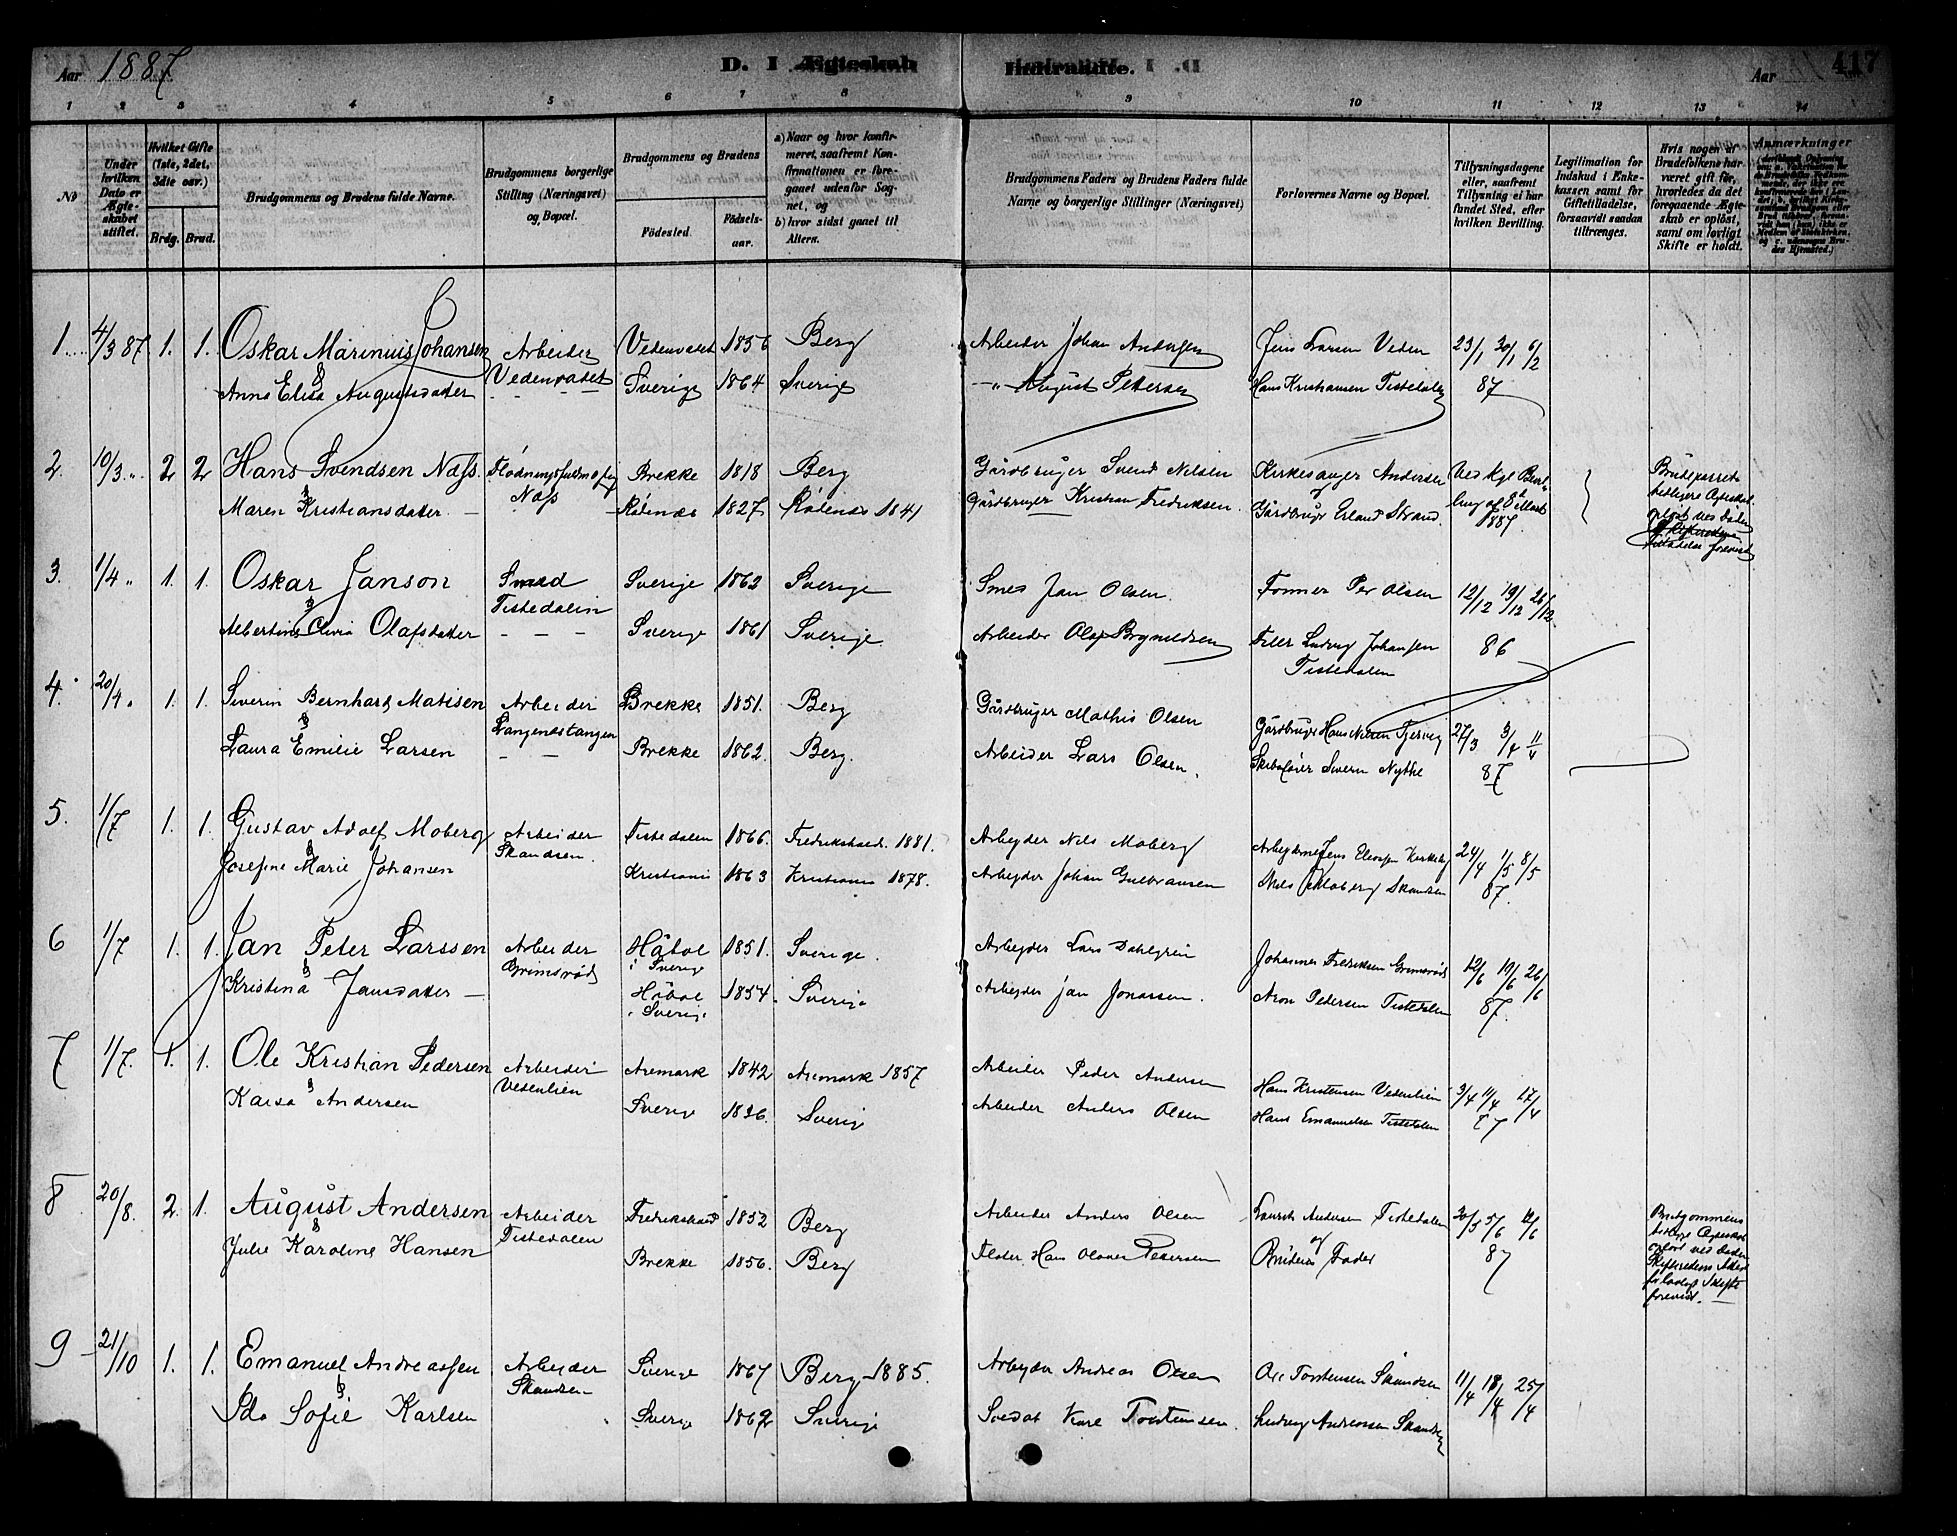 Aar 1887 D. I. Ægteskab Indtraadte. Aar 417
1 2 3 4 5 6 7 8 9 10 11 12 13 14
No
Under hvilken Dato er Ægteskabet stiftet.
Hvilket Gifte (1ste, 2det, 3die osv.)
Brdg. Brud.
Brudgommens og Brudens fulde Navne.
Brudgommens borgerlige Stilling (Næringsvei) og Bopæl.
Brudgommens og Brudens
Fødested. Fødselsaar.
a) Naar og hvor konfirmeret, saafremt Konfirmationen er foregaaet udenfor Sognet, og
b) hvor sidst gaaet til Alters.
Brudgommens Faders og Brudens Faders fulde Navne og borgerlige Stillinger (Næringsvei)
Forlovernes Navne og Bopæl.
Tillysningsdagene eller, saafremt Tillysning ei har fundet Sted, efter hvilken Bevilling.
Legitimation for Indskud i Enkekassen samt for Giftetilladelse, forsaavidt saadan tiltrænges.
Hvis nogen af Brudefolkene har været gift før, hvorledes da det foregaaende Ægteskab er opløst, samt om lovligt Skifte er holdt.
Anmærkninger
1 4/3 87 1. 1. Oskar Marinius Johansen Arbeider Vedenradet 1856 Berg Arbeider Johan Andersen Jens Larsen Veden 23/1 30/1 6/2
& Vedenradet
Anna Elisa Augustsdatter Sverige 1864 Sverige —"— August Pettersen Hans Kristiansen Tistedalen 87
2. 10/3 " 2 2 Hans Svendsen Næss. Brekke 1818 Berg Gårdbruger Svend Nilsen Kirkesanger Andersen Ved Kgl
& Næss og
Maren Kristiansdatter — 1827 1841 Gårdbruger Kristian Fredriksen. Gårdbruger Erland Strand. 1887.
3. 1/4 " 1. 1. Oskar Janson Smed Sverige 1862 Sverige Smed Jan Olsen. Formen Per Olsen 12/12 19/12 26/12
& Tistedalen
Albertine Olafsdatter — — — Sverige 1861 Sverige Arbeider Olaf Brynildsen Ludvig Johansen 86
Tistedalen
4. 20/4 " 1. 1. Severin Bernhard Matisen Arbeider Brekke 1851. Berg Gårdbruger Mathis Olsen Gårdbruger Hans Nilsen 27/3 3/4 11/4
& Langendstangen
Laura Emilie Larsen — — Brekke 1862. Berg. Arbeider Lars Olsen. Severin 87
5. 1/7 1. 1. Gustav Adolf Moberg Arbeider Tistedalen 1866. Fredrikshald. 1881. Arbeyder Nils Moberg Jens 24/4 1/5 8/5
& Skandsen.
Josefine Marie Johansen Kristiania 1863 Kristiania 1878. Arbeyder Johan Gulbransen Nils Moberg Skandsen 87.
6 1/7 1. 1. Jan Peter Larssen Arbeider Håbol 1851. Sverige. Arbeyder Lars Dahlgren Johannes Fredriksen Grimsrød 12/6 19/6 26/6
& Grimsrød i Sverige
Kristina Jansdatter — Håbol 1854. Sverige Arbeyder Jan Jonassen. Aron Pedersen Tistedalen 87.
i Sverige
7 1/7. 1. 1. Ole Kristian Pedersen Arbeider Aremark 1842 Aremark 1857 Arbeider Peder Andersen Hans Kristensen Vedenlien 3/4 11/4 17/4
& Vedenlien
Karsa Andersen Sverige 1836. Sverig Arbeider Anders Olsen Hans Emanuelsen Tistedalen 87
8 20/8. 2. 1. August Andersen Arbeider Fredrikshald 1852 Berg Arbeider Anders Olsen Laurits Andersen Tistedalen 30/5 5/6 12/6
& Tistedalen og
Julie Karoline Hansen Brekke 1856. Berg Hans Pettersen Brudens Fader 87
Brudgommens
opløst ved Døden
Skifte
forevist. —
9 21/10 1. 1. Emanuel Andreassen Arbeider Sverige 1867 Berg 1885. Arbeyder Andreas Olsen Torstensen Skandsen 11/4 18/4 25/4
& Skandsen
Ida Sofie Karlsen Sverige 1862 Sverige Soldat Karl Torstensen. Ludvig Andreassen Skandsen